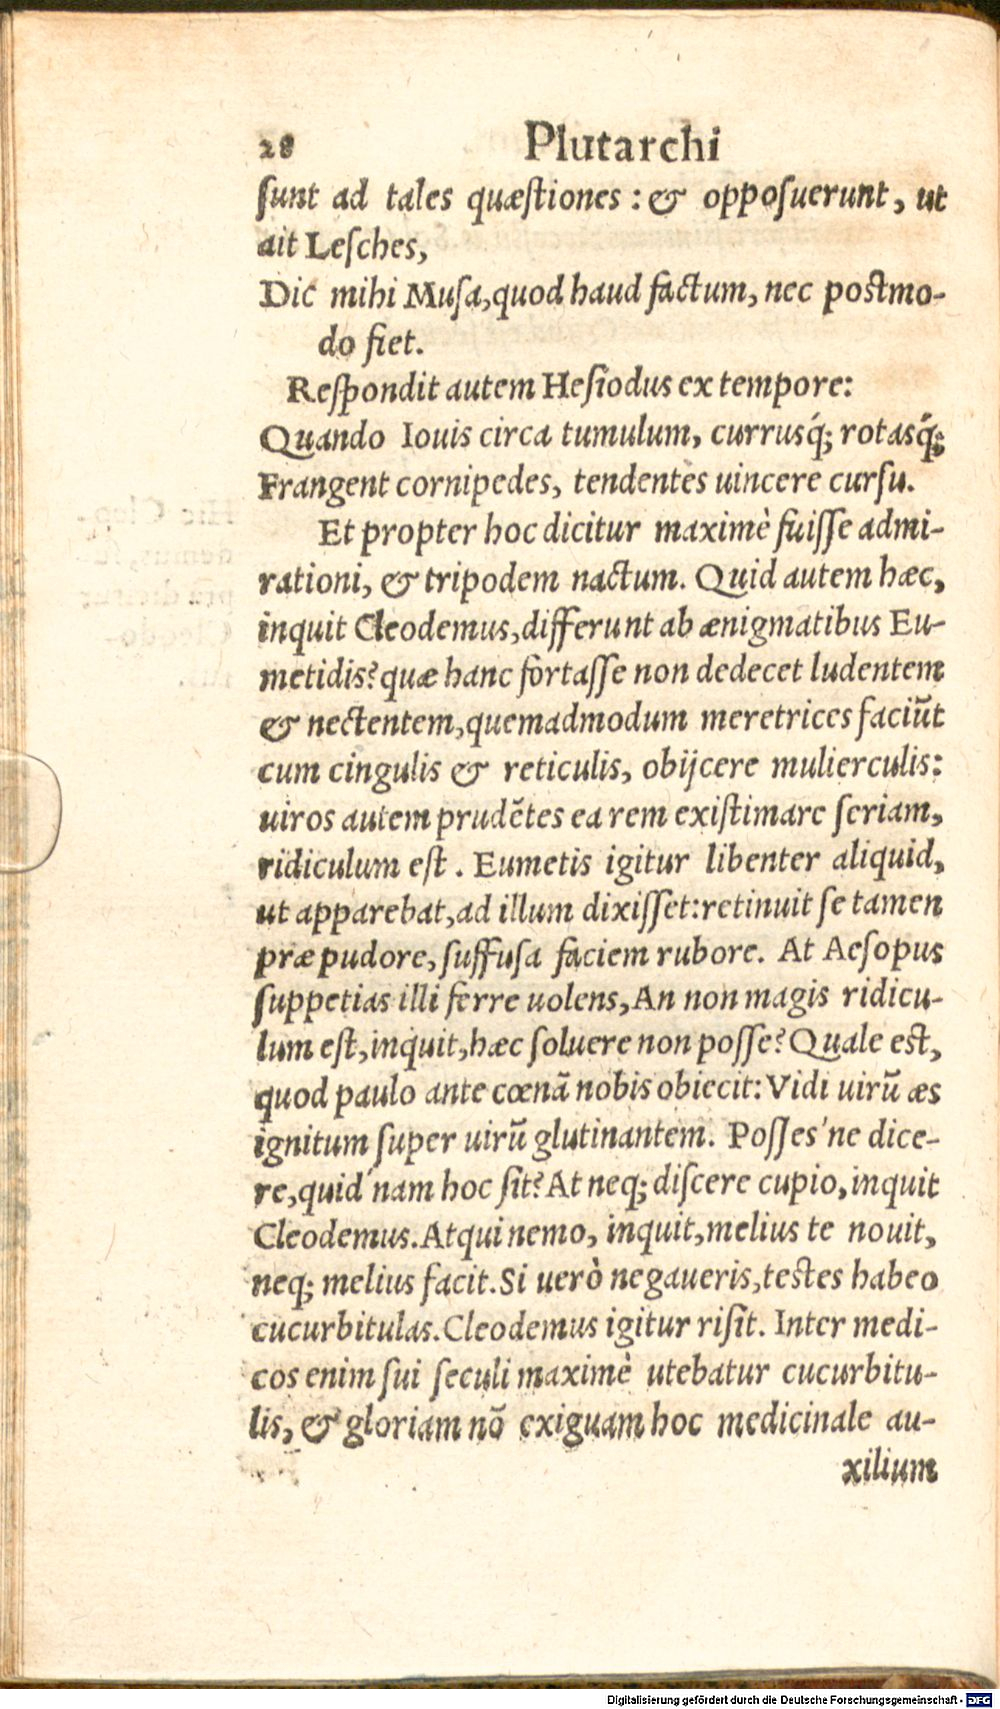 28 Plutarchi
sunt ad tales quæstiones: & opposuerunt, ut
ait Lesches,
Dic mihi Musa, quod haud factum, nec postmo-
do fiet.
Respondit autem Hesiodus ex tempore:
Quando Iouis circa tumulum, currusq́; rotasq́;
Frangent cornipedes, tendentes uincere cursu.
Et propter hoc dicitur maximè fuisse admi-
rationi, & tripodem nactum. Quid autem hæc,
inquit Cleodemus, differunt ab ænigmatibus Eu-
metidis? quæ hanc fortasse non dedecet ludentem
& nectentem, quemadmodum meretrices faciũt
cum cingulis & reticulis, obijcere mulierculis:
uiros autem prudẽtes ea rem existimare seriam,
ridiculum est. Eumetis igitur libenter aliquid,
ut apparebat, ad illum dixisset: retinuit se tamen
præ pudore, suffusa faciem rubore. At Aesopus
suppetias illi ferre uolens, An non magis ridicu-
lum est, inquit, hæc soluere non posse? Quale est,
quod paulo ante cœnã nobis obiecit: Vidi uirũ æs
ignitum super uirũ glutinantem. Posses'ne dice-
re, quid'nam hoc sit? At neq; discere cupio, inquit
Cleodemus. Atqui nemo, inquit, melius te nouit,
neq; melius facit. Si uerò negaueris, testes habeo
cucurbitulas. Cleodemus igitur risit. Inter medi-
cos enim sui seculi maximè utebatur cucurbitu-
lis, & gloriam nõ exiguam hoc medicinale au-
xilium
Digitalisierung gefördert durch die Deutsche Forschungsgemeinschaft - DFG